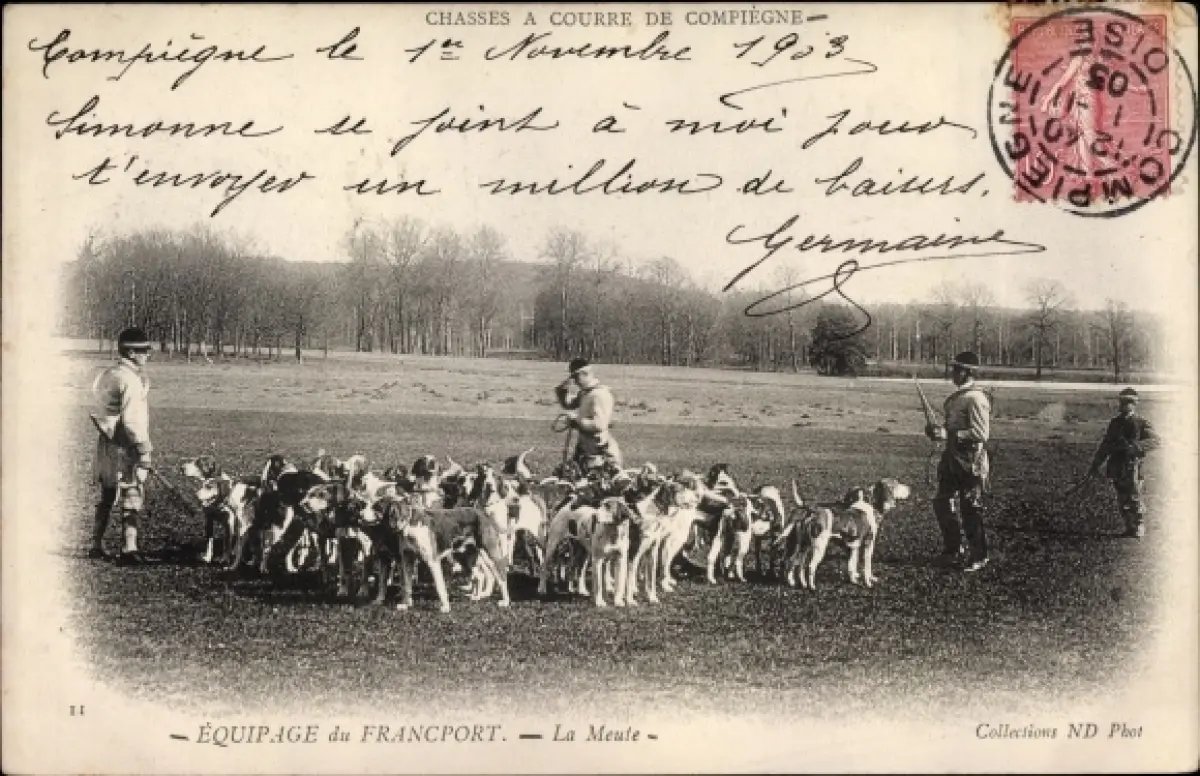 CHASSES A COURRE DE COMPIÈGNE
Compiègne le 1er Novembre 1903
Simonne se joint à moi pour
t'envoyer un million de baisers.
Germaine
COMPIEGNE
OISE
11
ÉQUIPAGE du FRANCPORT. — La Meute
Collections ND Phot